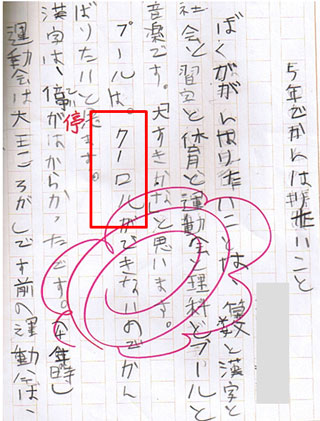 5年でかんばりたいこと
ぼくががんばりたいことは、算数と漢字と
社会と習字と体育と運動会と理科とプールと
音楽です。大すきだなと思います。
プールは。クーロルができないのでかん
ばりたいと思ます。
漢字は、停がはからかったです。年時し
運動会は大王ころがしです前の運動会は、